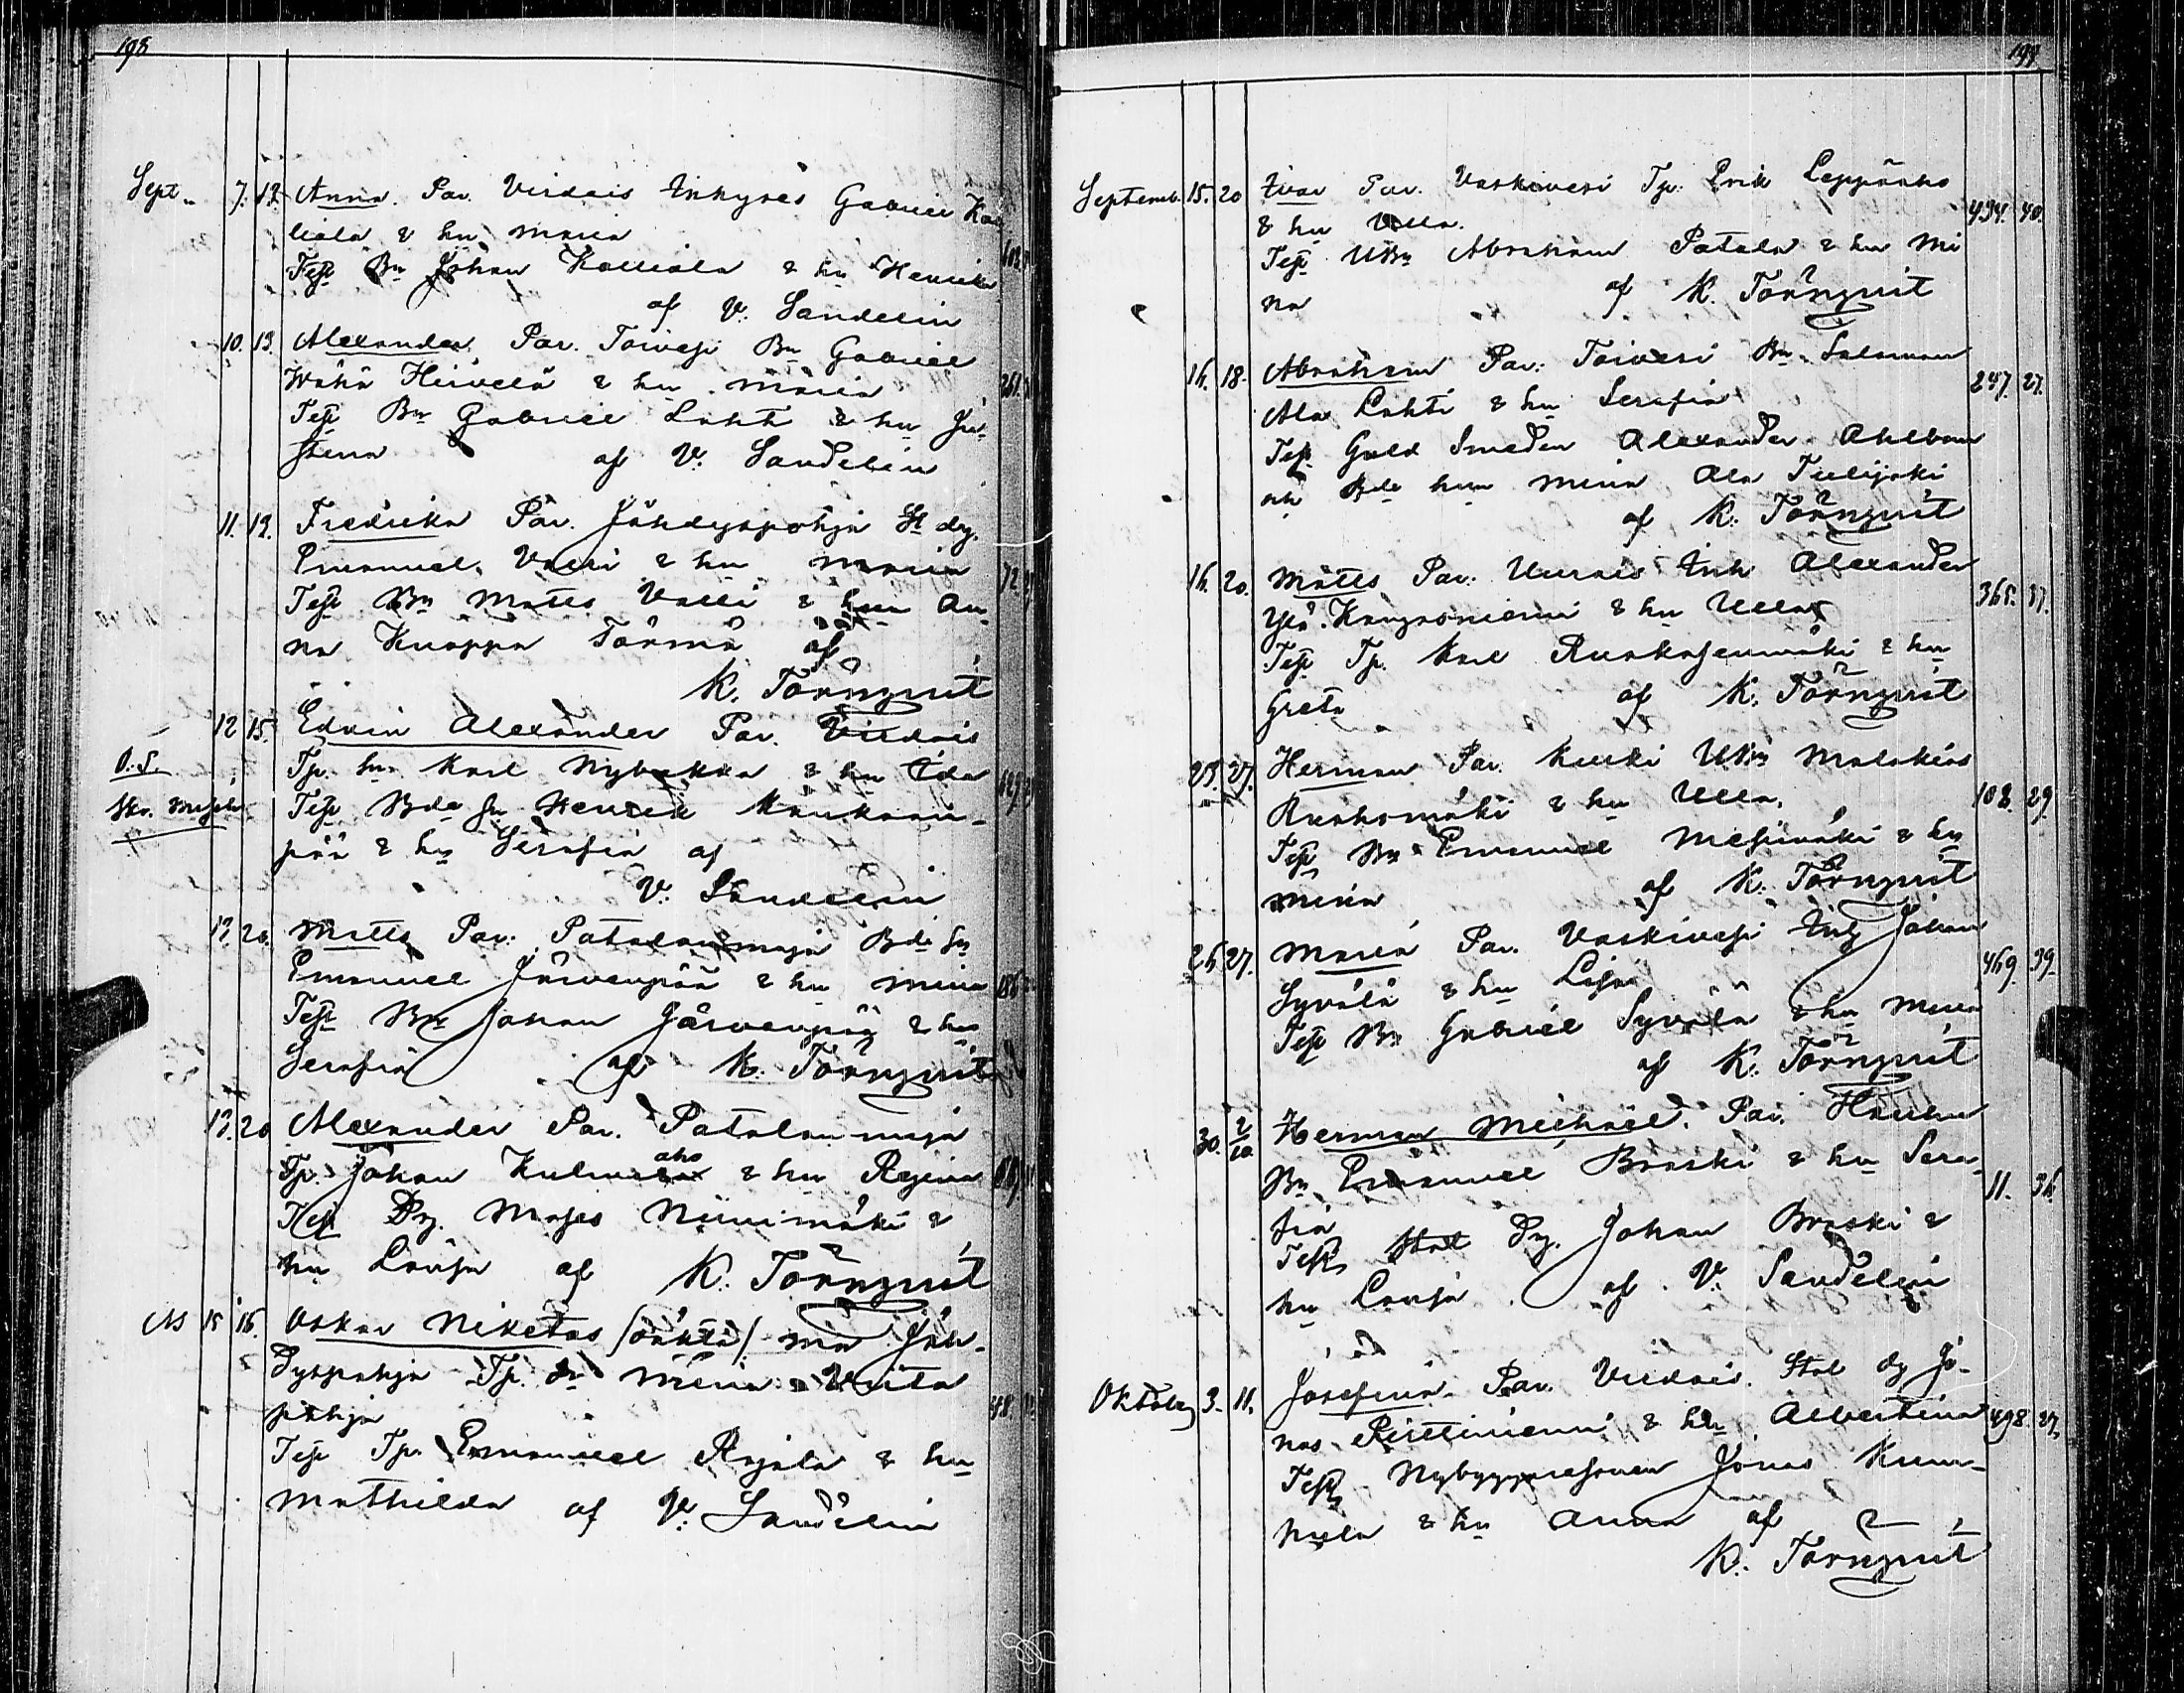 198
Sept.. 7. 12. Anna. Par. Virdois Inhyses Gabriel Kal
liala & hu Maria
Test Bn Johan Kalliala & hu Henrika
af V. Sandelin
10. 13. Alexander Par. Toivesi Bn Gabriel 261.
Wähä Hirvelä & hu Maria
Test Bn Gabriel Lahti & hu Ju-
stina af V. Sandelin
11. 12. Fredrika Par. Jähdyspohja St dg.
Emanuel Valli & hu Maria 72
Test Bn Matts Valli & hu An-
na Knappa Törmä af
K. Törnqvist
12 15. Edvin Alexander Par. Virdois
O. S. Tp. hu Karl Nybakka & hu Ida
Test Bde Sn Henrik Kaukaan-
pää & hu Serafia af
V. Sandelin
13. 20. Matts Par. Patalanmaja Bde Sn
Emanuel Järvenpää & hu Mina
Test Bn Johan Järvenpää & hu
Serafia af K. Törnqvist
13. 20 Alexander Par. Patalanmaja
Tp. Johan Kulmaaho & hu Regina
Test Dg. Moses Niinimäki &
hu Lovisa af K. Törnqvist
15 16. Oskar Niketas (oäkta) Mor Jäh-
dyspohja Tp. dr Mina Verita
pohja 48.
Test Tp. Emanuel Rajala & hu
Mathilda af V. Sandelin
199
Septemb. 15. 20 Ivar Par. Vaskivesi Tp. Erik Leppäaho
& hu Ulla. 434. 40.
Test UBn Abraham Patala & hu Mi
na af K. Törnqvist
16. 18. Abraham Par. Toivesi Bn Salomon
Ala Lahti & hu Serafia 247. 27.
Test Guld Smeden Alexander Ahlbom
och Bde hun Mina Ala Tulijoki
af K. Törnqvist
16. 20. Matts Par. Uurais Inh Alexander
Ylä Kangasniemi & hu Ulla 365. 37.
Test Tp. Karl Ruokosenmäki & hu
Greta af K. Törnqvist
23. 27. Herman Par. Kurki UBn Malakias
Ruohomäki & hu Ulla. 108. 29.
Test Bn Emanuel Mesimäki & hu
Mina af K. Törnqvist
26 27. Maria Par. Vaskivesi Inh Johan
Syvälä & hu Lisa 469. 39.
Test Bn Gabriel Syvälä & hu Maria
af K. Törnqvist
30. 2/10 Herman Michael. Par. Hauhu
Bn Emanuel Braski & hu Sera- 11. 36
fia
Test Stat Dg. Johan Braski &
hu Lovisa af V. Sandelin
Oktober 3. 11. Josefina Par. Virdois. Stat dg Jo-
nas Ristiniemi & hu Albertina 498 27.
Test Nybyggaresonen Jonas Kum-
nula & hu Anna af
K. Törnqvist